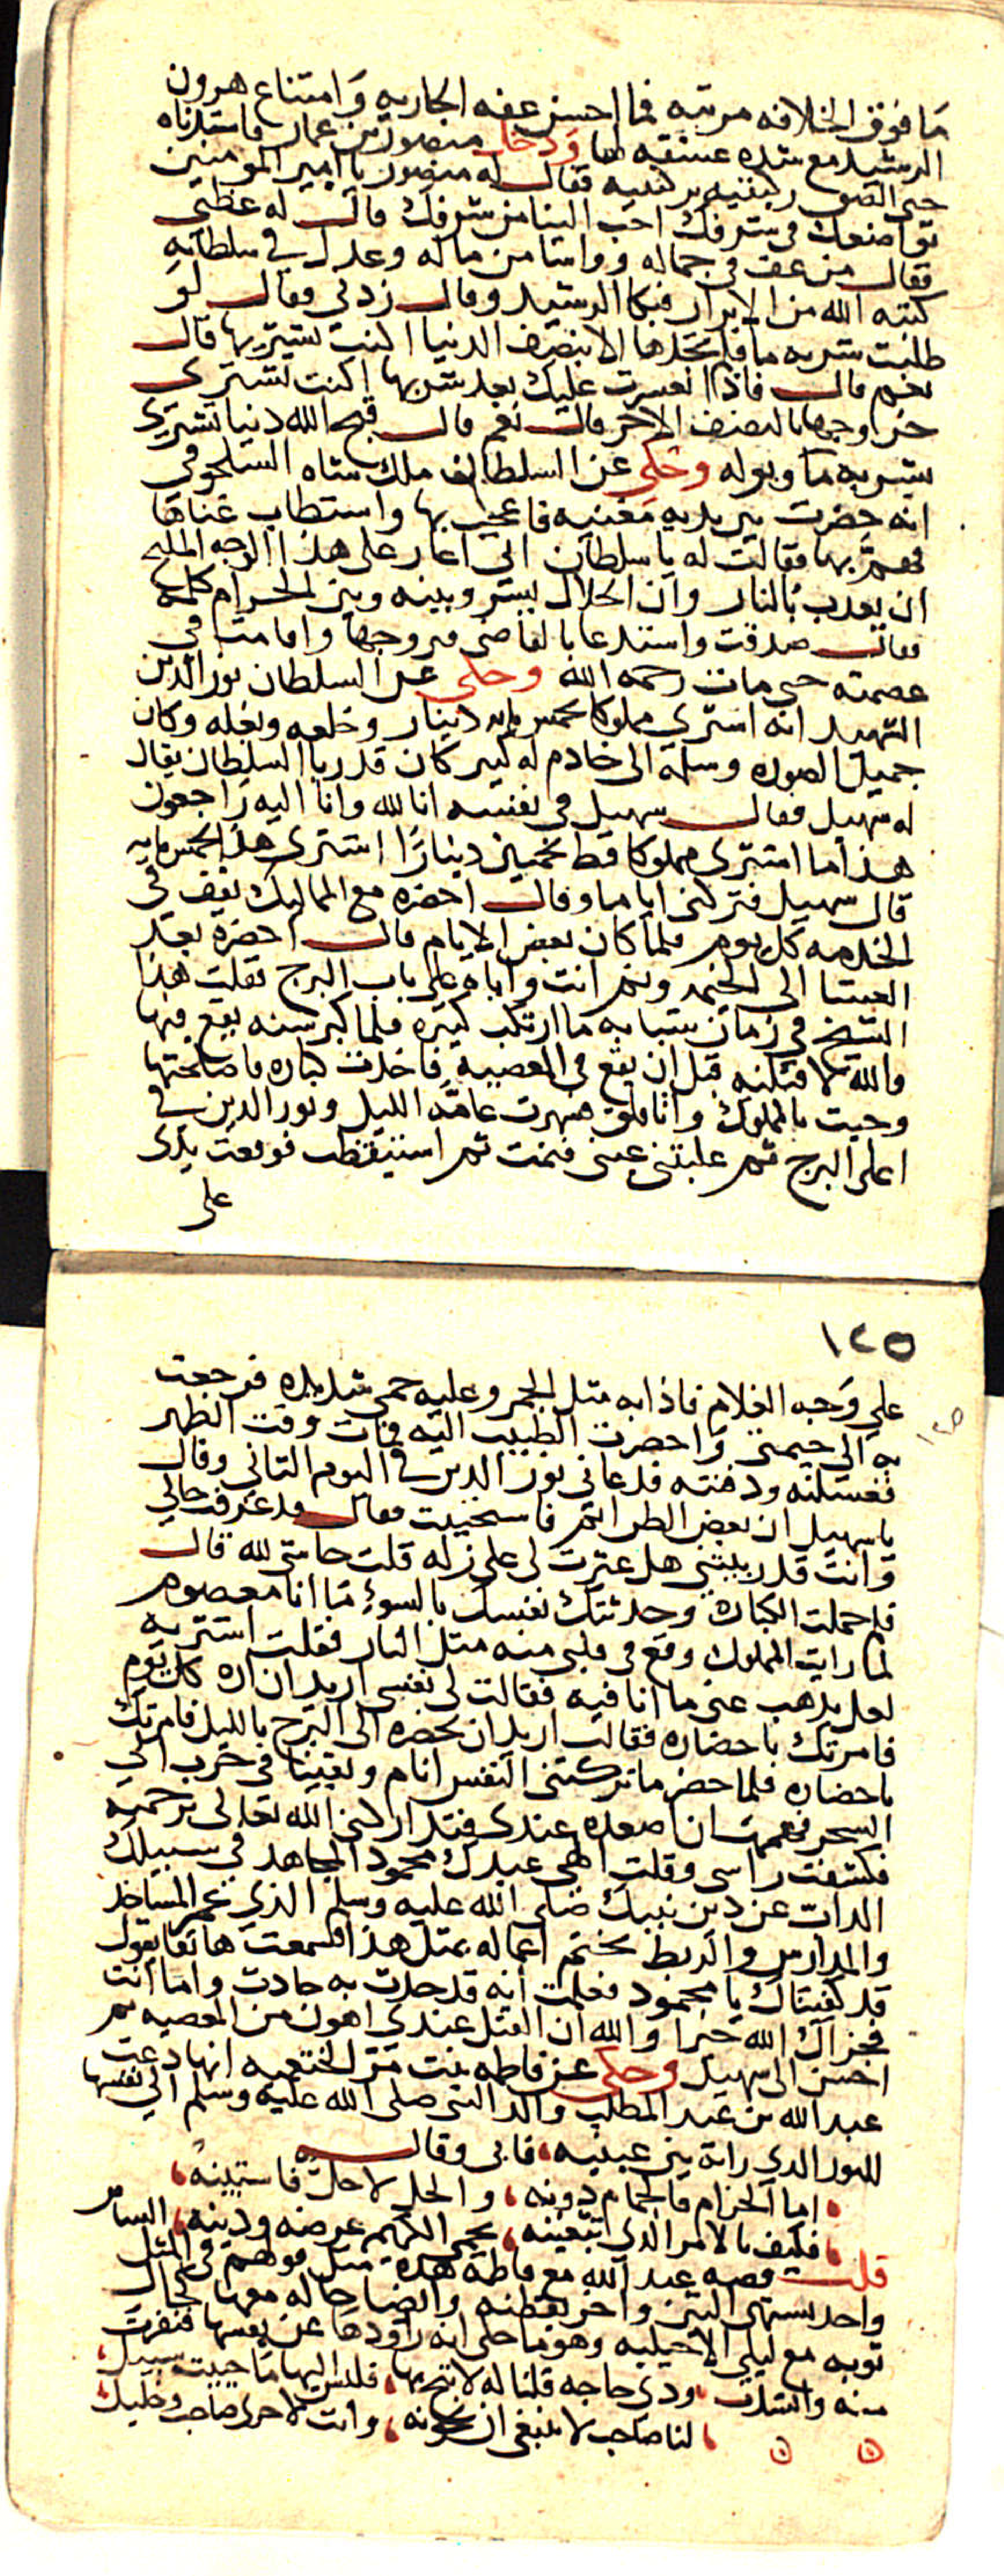 ما فوق الخلافه مرتبه فما احسن عفه الجاريه وامتناع هرون
الرشيد مع شده عشقه لها ودخل منصور بن عمار فاستدناه
حتى الصق ركبتيه بركبتيه فقال له منصور يا امير المومنين
تواضعك في شرفك احب الينا من شرفك قال له عظني
فقال من عف في جماله وواسا من ماله وعدل في سلطانه
كتبه الله من الابرار فبكا الرشيد وقال زدني فقال لو
طلبت شربه ما فلم تجدها الا بنصف الدنيا اكنت تشتريها قال
نعم قال فاذا تعسرت عليك بعد شربها اكنت تشتري
خروجها بالنصف الاخر قال نعم قال قبح الله دنيا تشترى
بشربه ما وبوله وحكي عن السلطان ملك شاه السلجوقي
انه حضرت بين يديه مغنيه فاعجب بها واستطاب غناها
فهم بها فقالت له يا سلطان اني اغار على هذا الوجه المليح
ان يعدب بالنار وان الحلال يسير وبينه وبين الحرام كلمه
فقال صدقت واستدعا بالقاضي فزوجها واقامت في
عصمته حتى مات رحمه الله وحكي عن السلطان نور الدين
الشهيد انه اشترى مملوكا بخمس مايه دينار وخلعه وبغله وكان
جميل الصوره وسلمه الى خادم له كبير كان قد ربا السلطان يقال
له سهيل فقال سهيل في نفسه انا لله وانا اليه راجعون
هذا ما اشترى مملوكا قط بخمسين دينارا اشترى هذا بخمس مايه
قال سهيل فتركني اياما وقال احضره مع المماليك يقف في
الخدمه كل يوم فلما كان بعض الايام قال احضره بعد
العشا الى الخيمه ونم انت واياه على باب البرج فقلت هذا
الشيخ في زمان شبابه ما ارتكب كبيره فلما كبر سنه يقع فيها
والله لاقتلنه قبل ان يقع في المعصيه فاخذت كتاره فاصلحتها
وجيت بالمملوك وانا قلق فسهرت عامه الليل ونور الدين في
اعلى البرج ثم غلبتني عيني فنمت ثم استيقظت فوقعت يدى
على
١٢٥
١٢٥
على وجه الغلام فاذا به مثل الجمر وعليه حمى شديده فرجعت
به الى خيمتي واحضرت الطبيب اليه فمات وقت الظهر
فغسلته ودفنته فدعاني نور الدين في اليوم الثاني وقال
يا سهيل ان بعض الظن اثم فاستحييت فقال قد عرفت حالي
وانت قد ربيتني هل عثرت لي على زله قلت حاشى لله قال
فلم حملت الكتاره وحدثتك نفسك بالسوء ما انا معصوم
لما رايت المملوك وقع في قلبي منه مثل النار فقلت اشتريه
لعل يذهب عني ما انا فيه فقالت لي نفسي اريد ان اراه كل يوم
فامرتك باحضاره فقالت اريد ان تحضره الى البرج بالليل فامرتك
باحضاره فلما حضر ما تركتني النفس انام وبقينا في حرب الى
السحر فهممت ان اصعده عندي فتداركني الله تعالى برحمته
فكشفت راسى وقلت الهى عبدك محمود المجاهد في سبيلك
الذاب عن دين نبيك صلى الله عليه وسلم الذي عمر المساجد
والمدارس والربط تختم اعماله بمثل هذا فسمعت هاتفا يقول
قد كفيناك يا محمود فعلمت انه قد حدث به حادث واما انت
فجزاك الله خيرا والله ان القتل عندي اهون من المعصيه ثم
احسن الى سهيل وحكي عن فاطمه بنت مر الخثعميه انها دعت
عبد الله بن عبد المطلب والد النبي صلى الله عليه وسلم الى نفسها
للنور الذي راته بين عينيه، فابى وقال
، اما الحرام فالحمام دونه، والحل لا حل فاستبينه،
، فكيف بالامر الذي ابتغينه، يحمي الكريم عرضه ودينه، السائر
قلت قصه عبد الله مع فاطمة هذه مثل قولهم في المثل
واحد يشتهى التين واخر يقطنه وايضا حاله معها كحال
توبه مع ليلي الاخيليه وهو ما حكى انه راودها عن نفسها فنفرت
منه وانشدت، وذي حاجه قلنا له لا تبح بها، فليس اليها ما حييت سبيل،
، لنا صاحب لا ينبغي ان نخونه، وانت لاخرى صاحب وخليل،